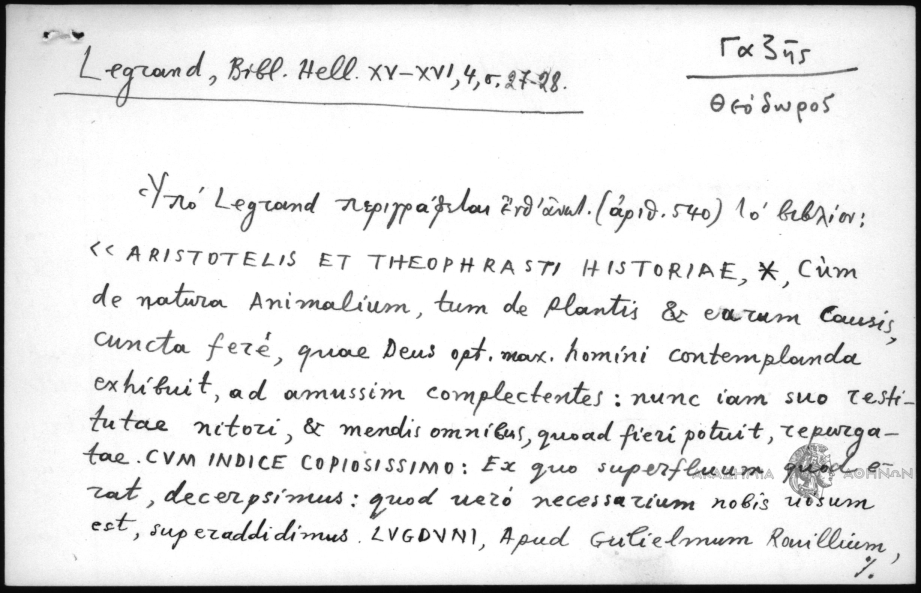 Legrand, Bibl. Hell. XV–XVI, 4, σ. 27-28.
Γαζῆς
Θεόδωρος
Ὑπό Legrand περιγράφεται ἐνθ' ἀνωτ. (ἀριθ. 540) τό βιβλίον:
«ARISTOTELIS ET THEOPHRASTI HISTORIAE, *, Cùm
de natura Animalium, tum de Plantis & earum Causis,
cuncta ferè, quae Deus opt. max. homini contemplanda
exhibuit, ad amussim complectentes: nunc iam suo resti-
tutae nitori, & mendis omnibus, quoad fieri potuit, repurga-
tae. CVM INDICE COPIOSISSIMO: Ex quo superfluum quod e-
rat, decerpsimus: quod uerò necessarium nobis uosum
est, superaddidimus. LVGDVNI, Apud Gulielmum Rouillium,
%.
ΑΚΑΔΗΜΙΑ ΑΘΗΝΩΝ